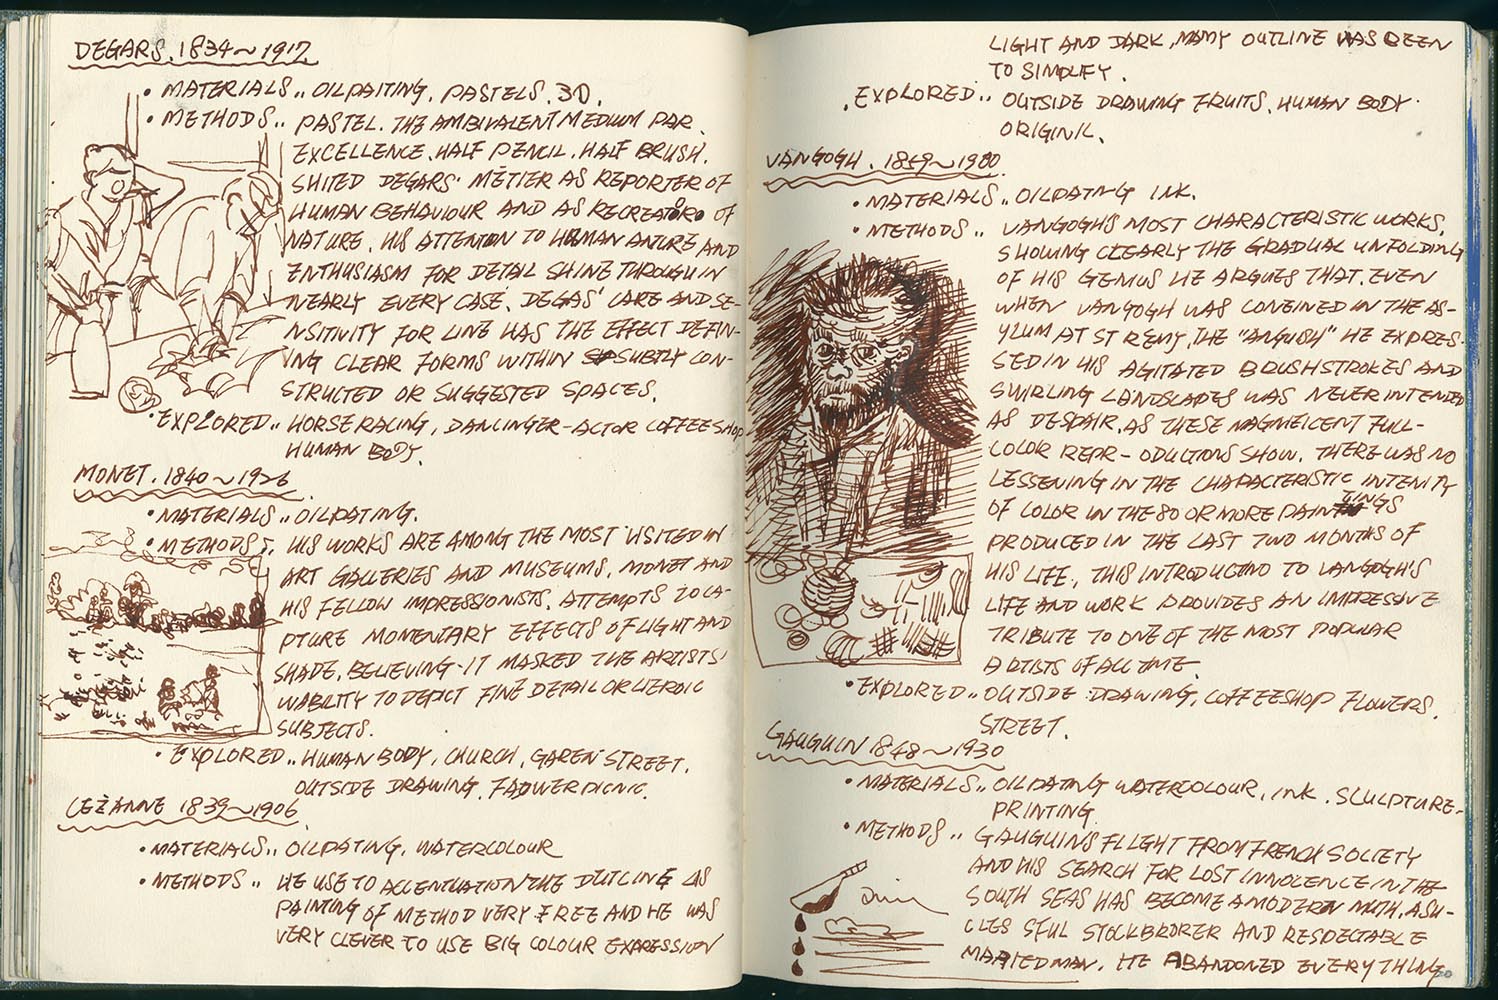 DEGARS. 1834~1917.
• MATERIALS.. OILPAITING. PASTELS. 3D.
• METHODS.. PASTEL. THE AMBIVALENT MEDIUM PAR.
EXCELLENCE. HALF PENCIL. HALF BRUSH.
SHITED DEGARS' MÉTIER AS REPORTER OF
HUMAN BEHAVIOUR AND AS RECREATOR OF
NATURE. HIS ATTENTION TO HUMAN ANTURE AND
ENTHUSIASM FOR DETAIL SHINE THROUGH IN
NEARLY EVERY CASE. DEGAS' CARE AND SE-
NSITIVITY FOR LINE HAS THE EFFECT DEFIN-
ING CLEAR FORMS WITHIN SUBTLY CON-
STRUCTED OR SUGGESTED SPACES.
• EXPLORED.. HORSE RACING, DANCINGER-ACTOR COFFEESHOP
HUMAN BODY.
MONET. 1840~1926
• MATERIALS.. OILPATING.
• METHODS: HIS WORKS ARE AMONG THE MOST VISITED IN
ART GALLERIES AND MUSEUMS. MONET AND
HIS FELLOW IMPRESSIONISTS. ATTEMPTS TO CA-
PTURE MOMENTARY EFFECTS OF LIGHT AND
SHADE. BELIEVING-IT MASKED THE ARTISTS'
TO DEPICT FINE DETAIL OR HEROIC
SUBJECTS.
• EXPLORED.. HUMAN BODY, CHURCH, GAREN STREET.
OUTSIDE DRAWING. PICNIC.
CEZANNE 1839~1906
• MATERIALS.. OILPATING. WATERCOLOUR
• METHODS.. HE USE TO ACCENTUATION THE OUTLINE
PAINTING OF METHOD VERY FREE AND HE WAS
VERY CLEVER TO USE BIG COLOUR EXPRESSION
LIGHT AND DARK, MANY OUTLINE WAS BEEN
TO SIMPLIFY.
. EXPLORED.. OUTSIDE DRAWING FRUITS. HUMAN BODY.
ORIGINIL.
VANGOGH. 1980
• MATERIALS.. OILPATING INK.
• METHODS.. VANGOGH'S MOST CHARACTERISTIC WORKS,
SHOWING CLEARLY THE GRADUAL UNFOLDING
OF HIS GENIUS HE ARGUES THAT. EVEN
WHEN VANGOGH WAS CONFINED IN THE AS-
YLUM AT ST REMY, THE "ANGUISH" HE EXPRES-
SED IN HIS AGITATED BRUSHSTROKES AND
SWIRLING LANDSCAPES WAS NEVER INTENDED
AS DESPAIR. AS THESE MAGNIFICENT FULL-
COLOR REPR-ODUCTIONS SHOW. THERE WAS NO
LESSENING IN THE CHARACTERISTIC INTENITY
OF COLOR IN THE 80 OR MORE PAINTINGS
PRODUCED IN THE LAST TWO MONTHS OF
HIS LIFE. THIS INTRODUCTINO TO VANGOGH'S
LIFE AND WORK PROVIDES AN IMPRESSIVE
TRIBUTE TO ONE OF THE MOST POPULAR
ARTISTS OF ALL TIME
• EXPLORED.. OUTSIDE DRAWING, COFFEESHOP FLOWERS.
STREET.
GAUGUIN 1848~1930
• MATERIALS.. OILPATING WATERCOLOUR, INK. SCULPTURE-
PRINTING
• METHODS.. GAUGUINS FLIGHT FROM FRENCH SOCIETY
AND HIS SEARCH FOR LOST INNOCENCE IN THE
SOUTH SEAS HAS BECOME A MODERN MUTH. A SU-
CCES SFUL STOCKBRORER AND RESPECTABLE
MARIED MAN. HE ABANDONED EVERYTHING